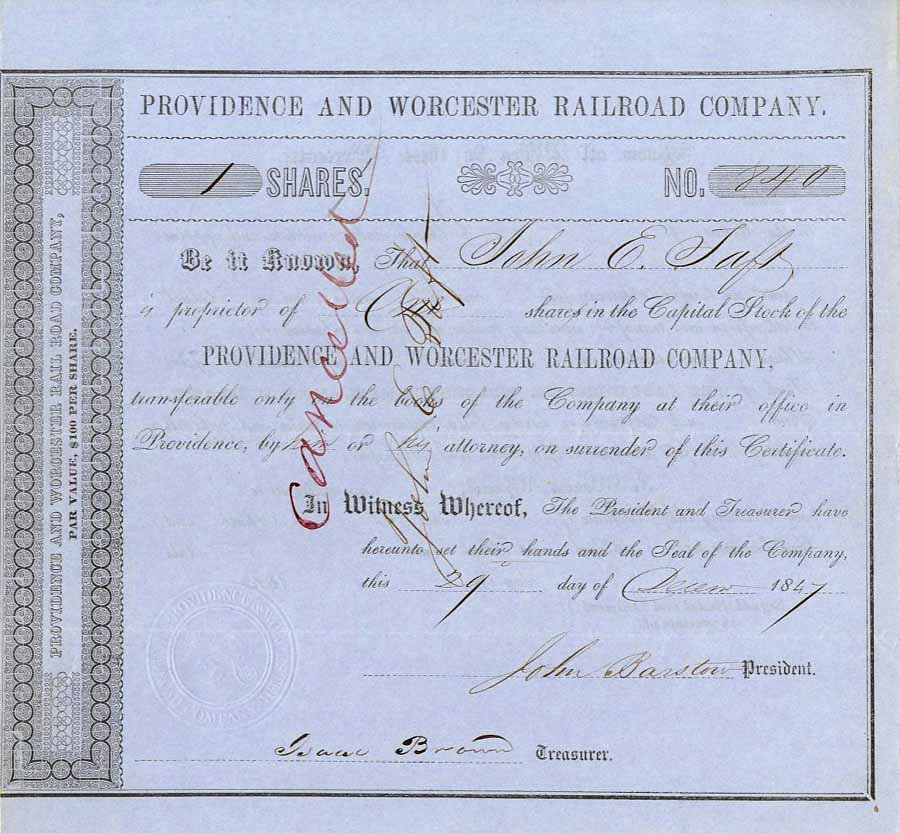 PROVIDENCE AND WORCESTER RAILROAD COMPANY.
1 SHARES. NO. 840
Be it Known, That John E. Taft
is proprietor of One shares in the Capital Stock of the
PROVIDENCE AND WORCESTER RAILROAD COMPANY,
transferable only on the books of the Company at their office in
Providence, by him or his attorney, on surrender of this Certificate.
In Witness Whereof, The President and Treasurer have
hereunto set their hands and the Seal of the Company,
this 29 day of Decem 1847
John Barstow President.
Isaac Brown Treasurer.
PROVIDENCE AND WORCESTER RAIL ROAD COMPANY,
PAR VALUE, $100 PER SHARE.
Cancelled
John E Taft